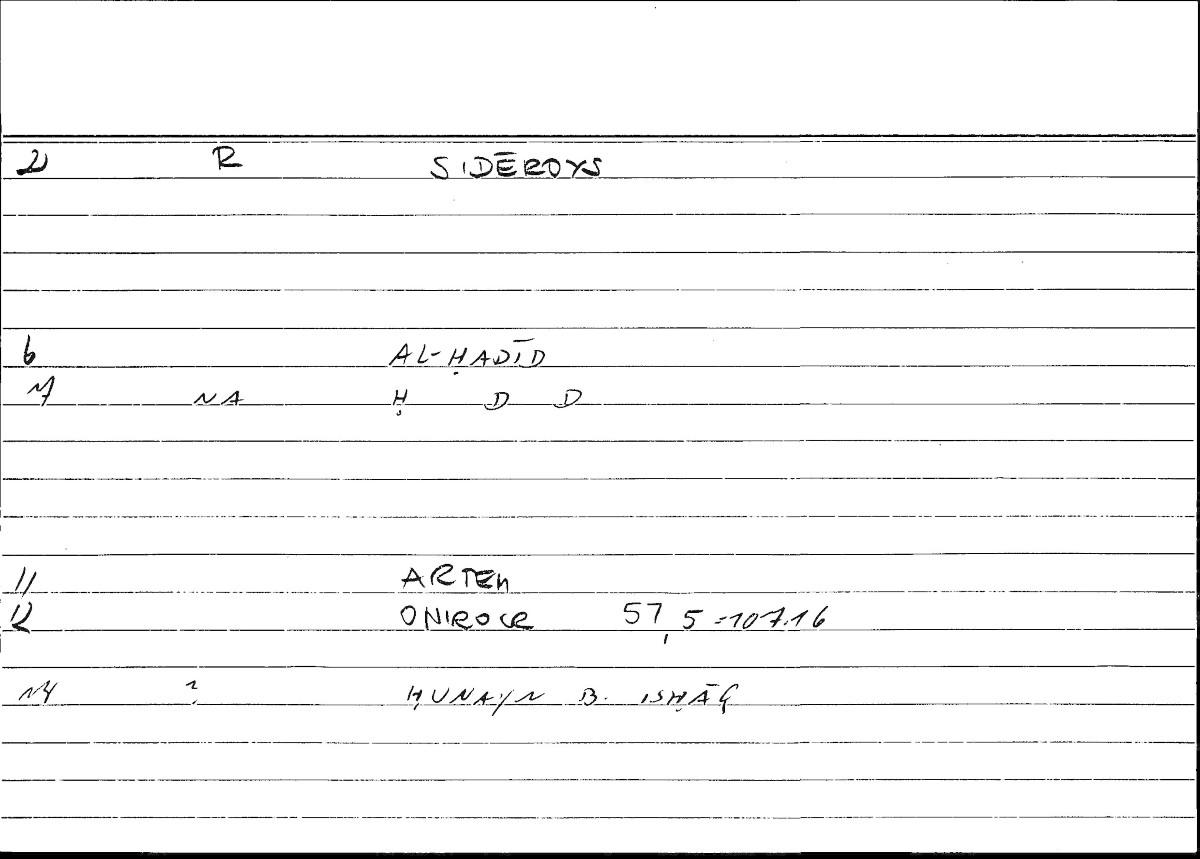 2 R SIDĒROYS
6 AL-ḤADĪD
7 NA Ḥ D D
11 ARTEM
12 ONIROCR 57,5=107.16
14 ? ḤUNAYN B. ISḤĀQ